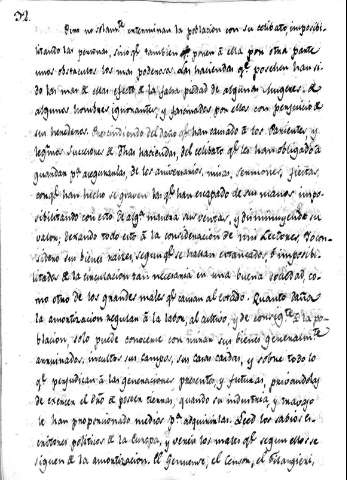 32.
Pero no solam.te exterminan la poblacion con su celibato, imposibi-
litando las personas, sino q.e tambien oponen á ella por otra parte
unos obstaculos los mas poderosos. Las haciendas q.e poschen han si-
do las mas de ellas efecto de la falsa piedad de algunas mugeres, de
algunos hombres ignorantes, y fascinados por ellos con perjuicio de
sus herederos. Prescindiendo del daño q.e han causado á los Parientes, y
legitimos succesores de dhas haciendas, del celibato q.e les han obligado á
guardar p.a asegurarlas, de los aniversarios, misas, sermones, fiestas,
con q.e han hecho se graven las q.e han escapado de sus manos impo-
sibilitando con esto de alg.a manera sus ventas, y disminuyendo su
valor; dexando todo esto á la consideracion de mis Lectores, Yo con-
sidero sus bienes raices, segun q.e se hallan estancados, é imposibi-
litados de la circulacion tan necesaria en una buena sociedad, co-
mo otro de los grandes males q.e causan al estado. Quanto daña
la amortizacion regular á la labor, al cultivo, y de consig.te á la po-
blacion, solo puede conocerse con mirar sus bienes generalm.te
arruinados, incultos sus campos, sus casas caidas, y sobre todo lo
q.e perjudican á las generaciones presentes, y futuras, privandolas
de exercer el dro de poseer tierras, quando su industria, y trabajo
le han proporcionado medios p.a adquirirlas. Leed los sabios es-
critores politicos de la Europa, y vereis los males q.e segun ellos se
siguen de la amortizacion. El Genuense, el Censon, el Filangieri,